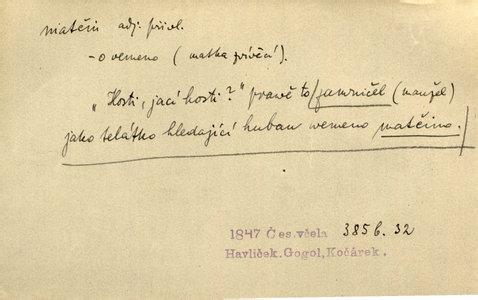 matčin adj. přivl.
- o vemeno (matka zvířecí).
„Hosti, jací hosti?" pravě to zamručel (manžel)
jako telátko hledající hubau wemeno matčino.
1847 Čes.včela 385 b. 32
Havlíček.Gogol,Kočárek.